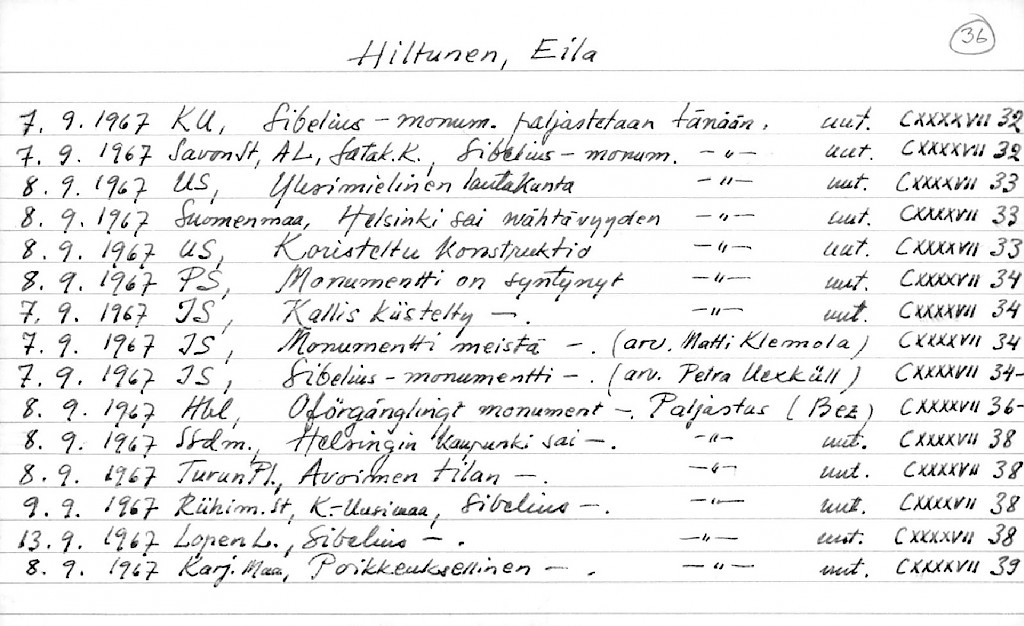 36
Hiltunen, Eila
7. 9. 1967 KU, Sibelius-monum. paljastetaan tänään. uut. CXXXXVII 32
7. 9. 1967 SavonSt, AL, Satak.K., Sibelius-monum. -"- uut. CXXXXVII 32
8. 9. 1967 US, Yksimielinen lautakunta -"- uut. CXXXXVII 33
8. 9. 1967 Suomenmaa, Helsinki sai nähtävyyden -"- uut. CXXXXVII 33
8. 9. 1967 US, Koristeltu konstruktio -"- uut. CXXXXVII 33
8. 9. 1967 PS, Monumentti on syntynyt -"- uut. CXXXXVII 34
7. 9. 1967 IS, Kallis kiistelty -. -"- uut. CXXXXVII 34
7. 9. 1967 IS, Monumentti meistä -. (arv. Matti Klemola) CXXXXVII 34
7. 9. 1967 IS, Sibelius-monumentti -. (arv. Petra Uexküll) CXXXXVII 34-
8. 9. 1967 Hbl, Oförgängligt monument -. Paljastus (Bez) CXXXXVII 36-
8. 9. 1967 SSdm., Helsingin kaupunki sai -. -"- uut. CXXXXVII 38
8. 9. 1967 TurunPl., Avoimen tilan -. -"- uut. CXXXXVII 38
9. 9. 1967 Riihim.St, K.-Uusimaa, Sibelius -. -"- uut. CXXXXVII 38
13. 9. 1967 LopenL., Sibelius -. -"- uut. CXXXXVII 38
8. 9. 1967 Karj.Maa, Poikkeuksellinen -. -"- uut. CXXXXVII 39